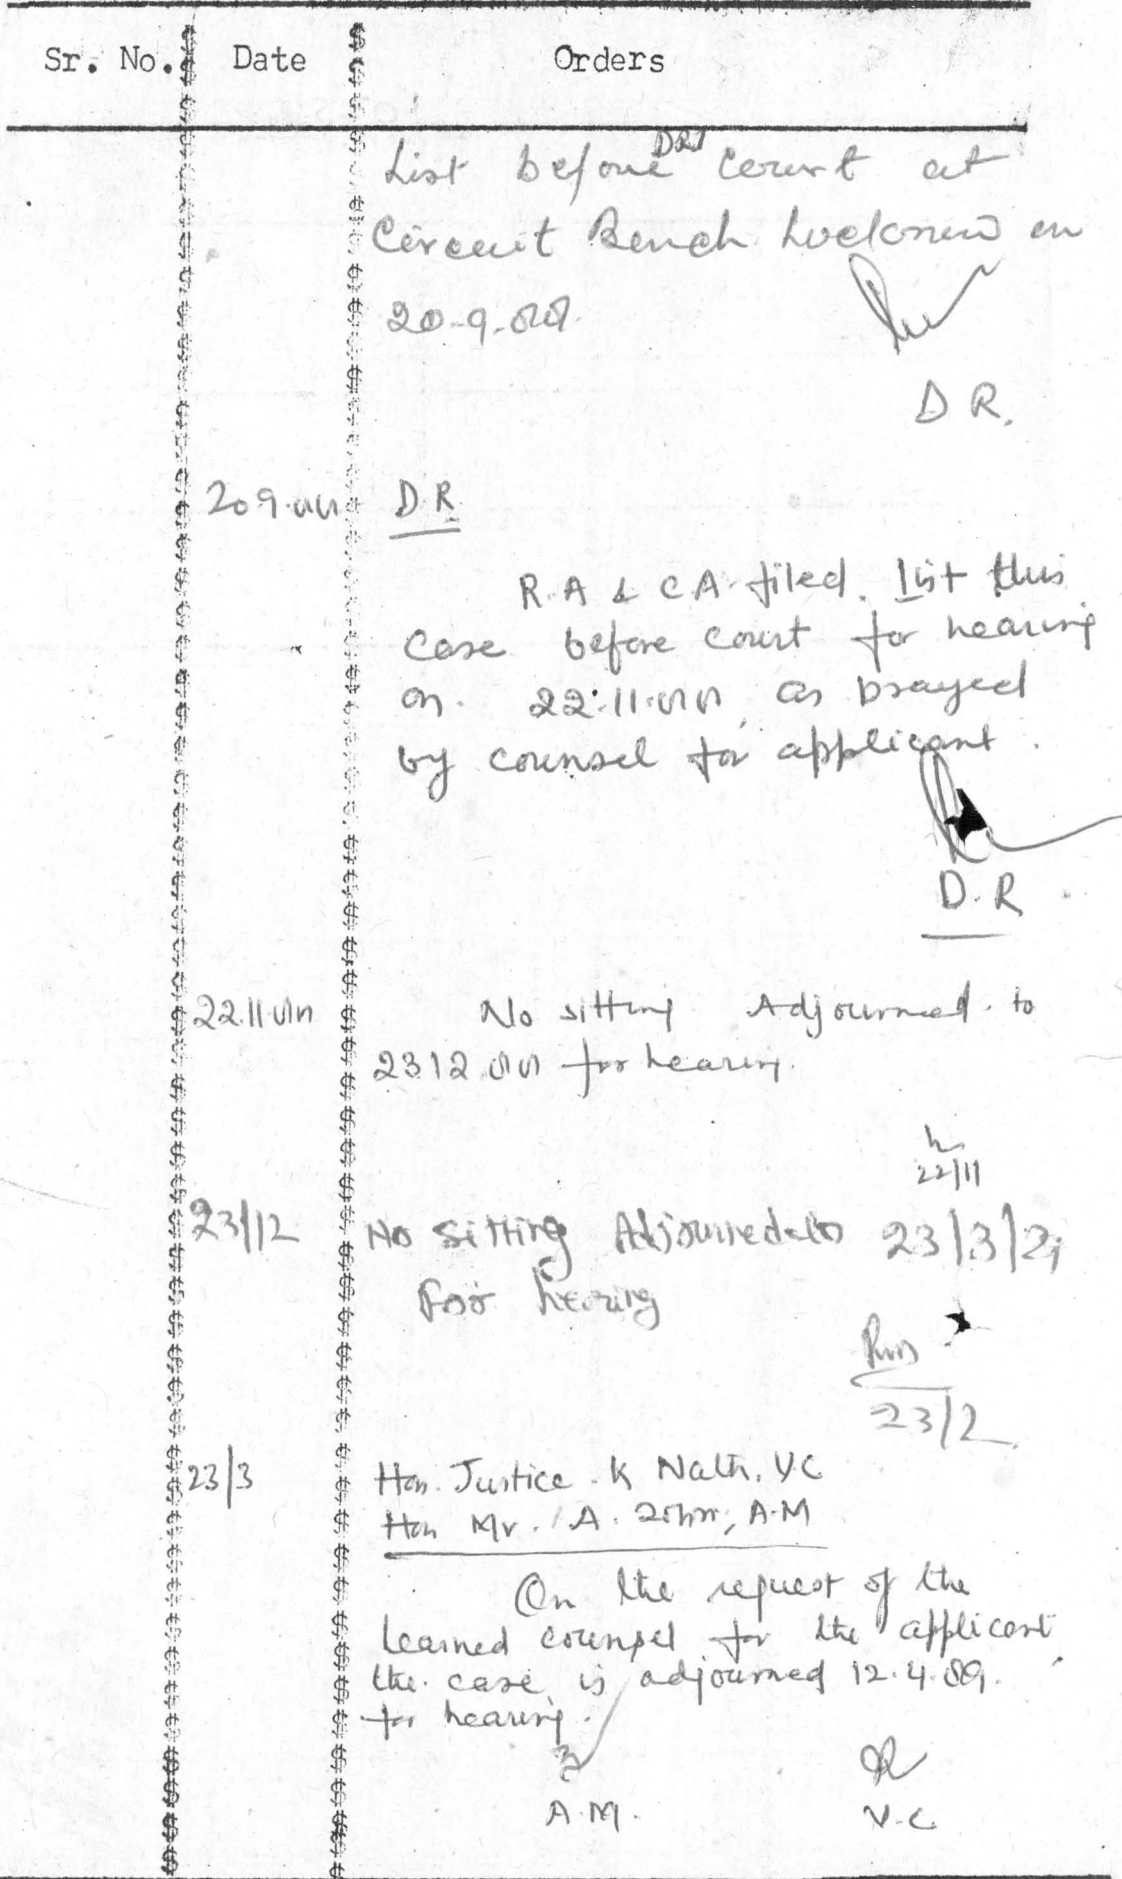 Sr. No. Date Orders
List before DR Court at
Circuit Bench Lucknow on
20-9-88.
D R.
20.9.88 D.R.
R.A & C.A. filed. List this
case before court for hearing
on 22.11.88, as prayed
by counsel for applicant.
D.R
22.11.88 No sitting Adjourned to
23.12.88 for hearing.
22/11
23/12 No sitting Adjourned to 23/3/
For hearing
23/2
23/3 Hon. Justice K Nath, V.C
Hon Mr. A. , A.M
On the request of the
learned counsel for the applicant
the case is adjourned 12.4.89.
for hearing.
A.M. V.C.